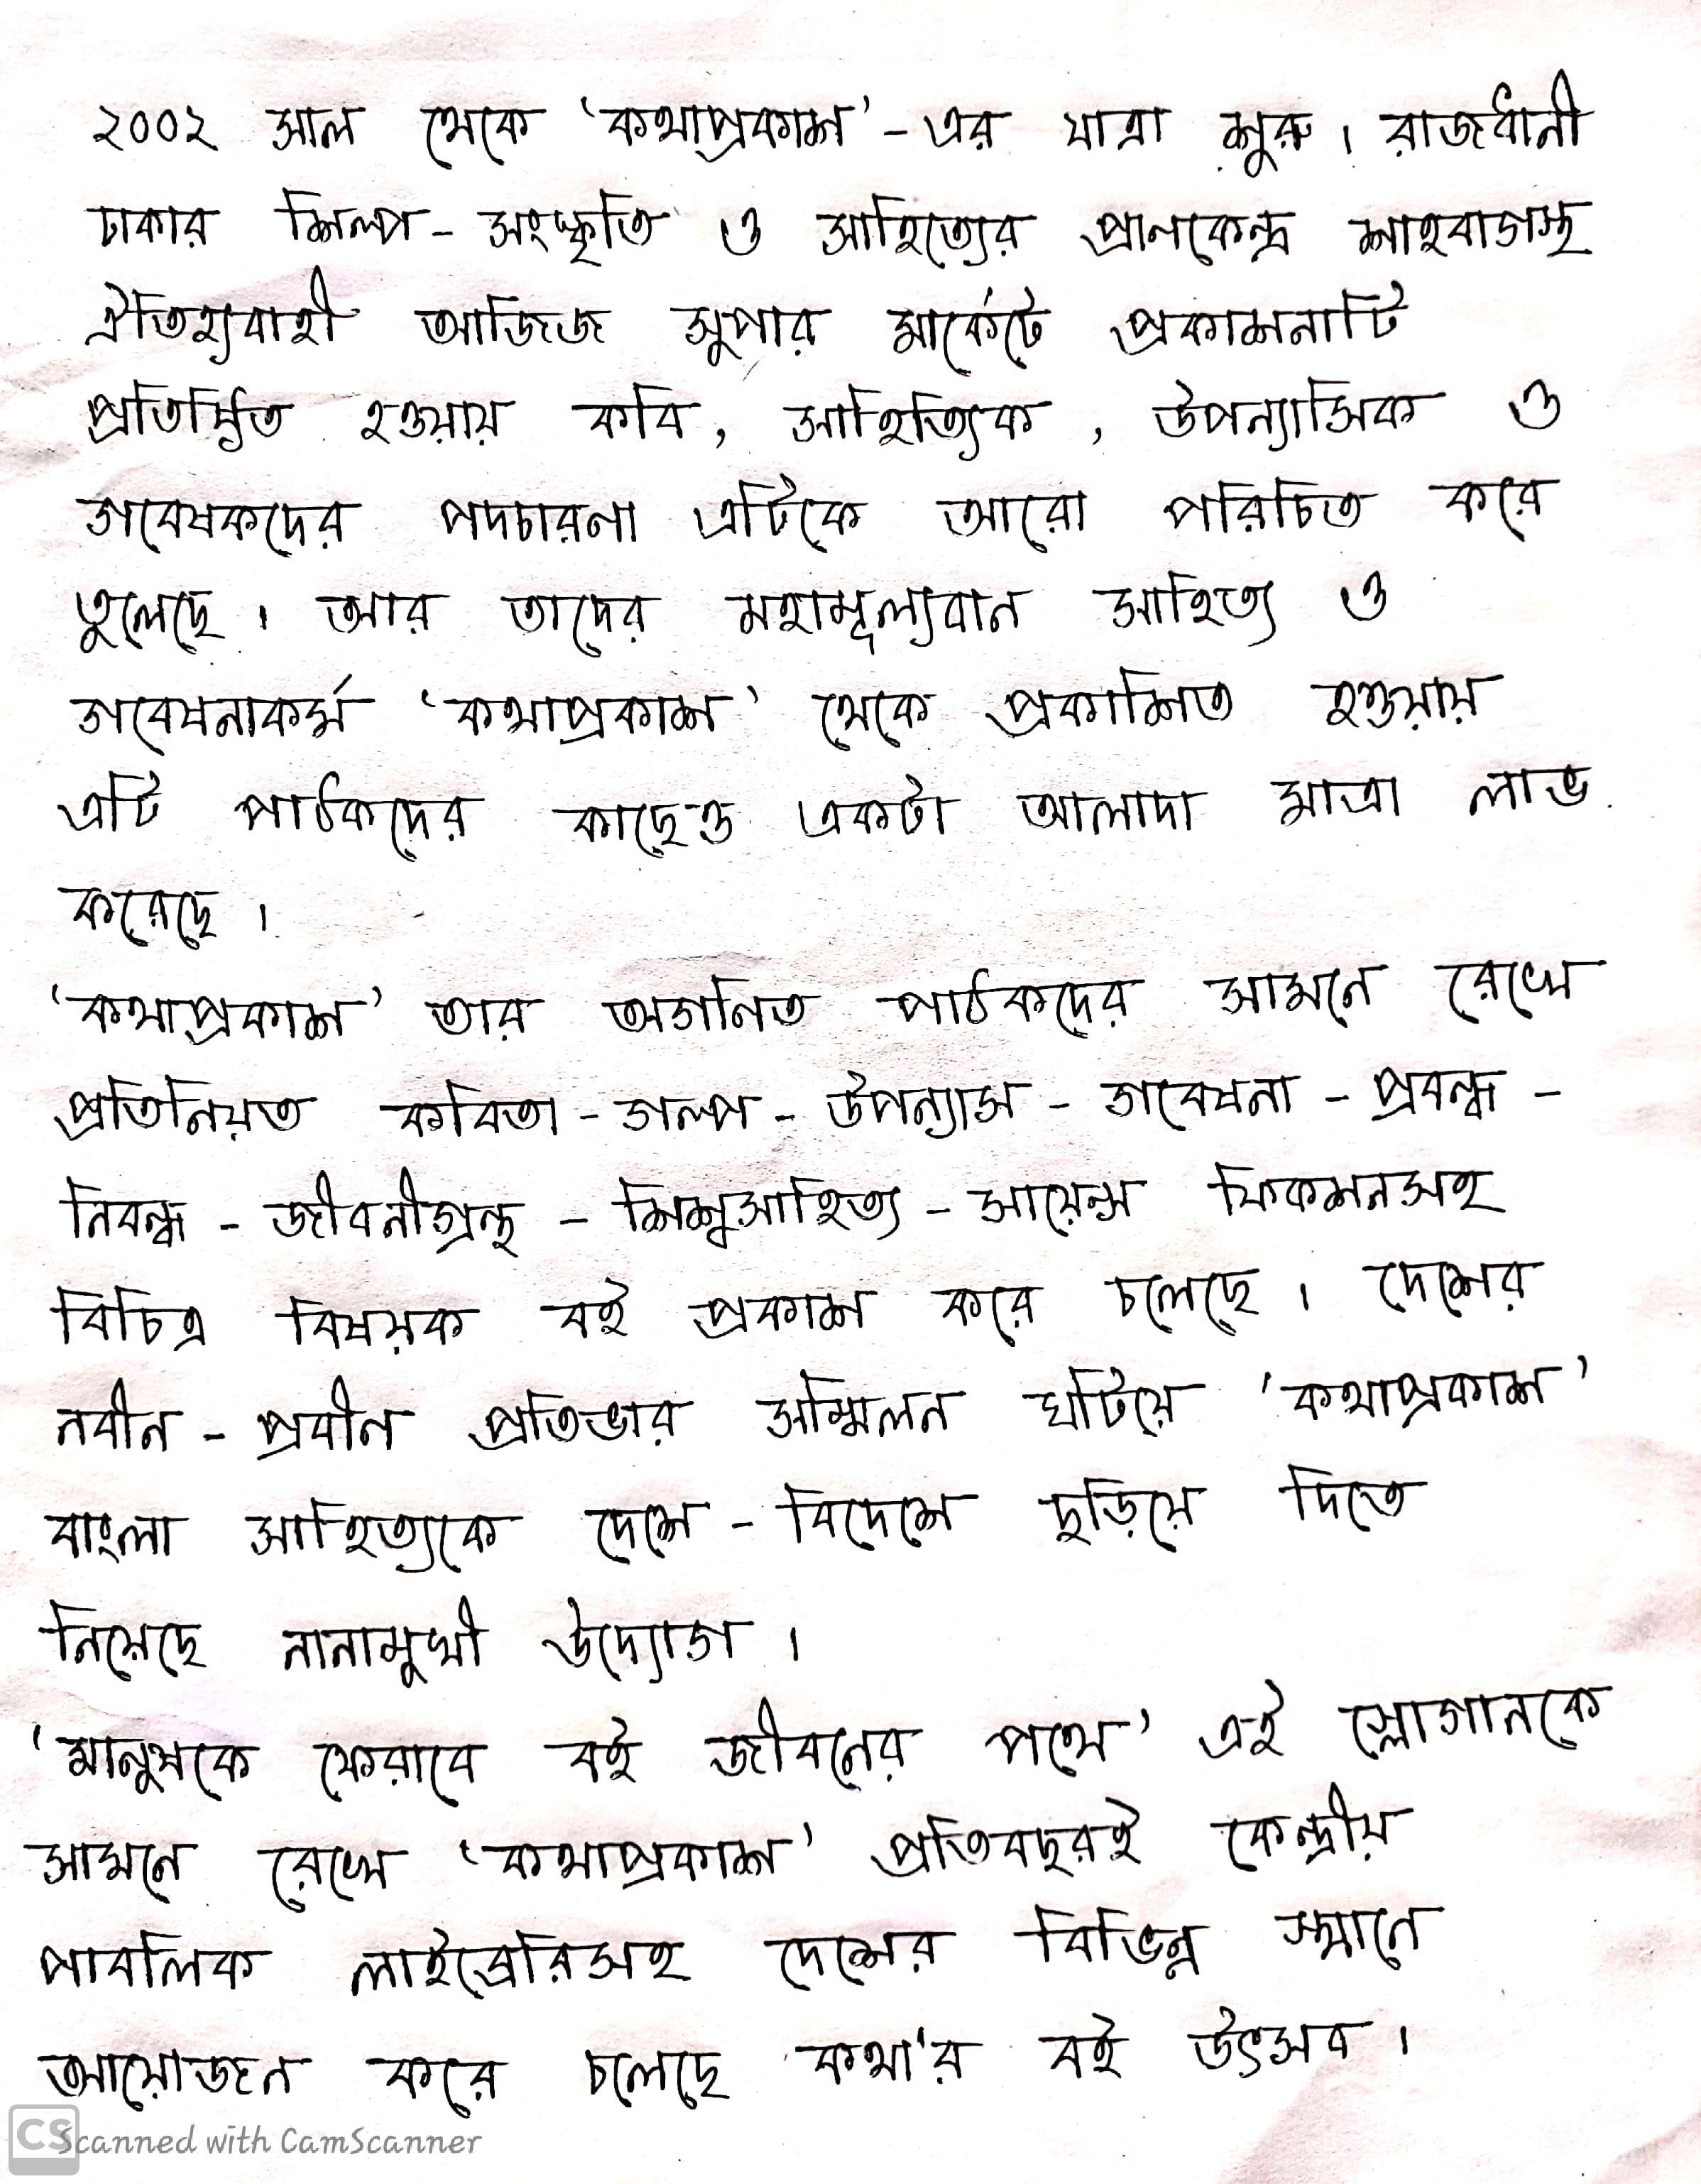 ২০০২ সাল থেকে ‘কথাপ্রকাশ’-এর যাত্রা শুরু। রাজধানী
ঢাকার শিল্প-সংস্কৃতি ও সাহিত্যের প্রাণকেন্দ্র শাহবাগস্থ
ঐতিহ্যবাহী আজিজ সুপার মার্কেটে প্রকাশনাটি
প্রতিষ্ঠিত হওয়ায় কবি, সাহিত্যিক, উপন্যাসিক ও
গবেষকদের পদচারণা এটিকে আরো পরিচিত করে
তুলেছে। আর তাদের মহামূল্যবান সাহিত্য ও
গবেষনাকর্ম ‘কথাপ্রকাশ’ থেকে প্রকাশিত হওয়ায়
এটি পাঠকদের কাছেও একটা আলাদা মাত্রা লাভ
করেছে।
‘কথাপ্রকাশ’ তার অগনিত পাঠকদের সামনে রেখে
প্রতিনিয়ত কবিতা-গল্প-উপন্যাস-গবেষনা-প্রবন্ধ-
নিবন্ধ-জীবনীগ্রন্থ-শিশুসাহিত্য-সায়েন্স ফিকশনসহ
বিচিত্র বিষয়ক বই প্রকাশ করে চলেছে। দেশের
নবীন-প্রবীণ প্রতিভার সম্মিলন ঘটিয়ে ‘কথাপ্রকাশ’
বাংলা সাহিত্যকে দেশে-বিদেশে ছড়িয়ে দিতে
নিয়েছে নানামুখী উদ্যোগ।
‘মানুষকে ফেরাবে বই জীবনের পথে’ এই স্লোগানকে
সামনে রেখে ‘কথাপ্রকাশ’ প্রতিবছরই কেন্দ্রীয়
পাবলিক লাইব্রেরিসহ দেশের বিভিন্ন স্থানে
আয়োজন করে চলেছে কথা'র বই উৎসব।
CS Scanned with CamScanner